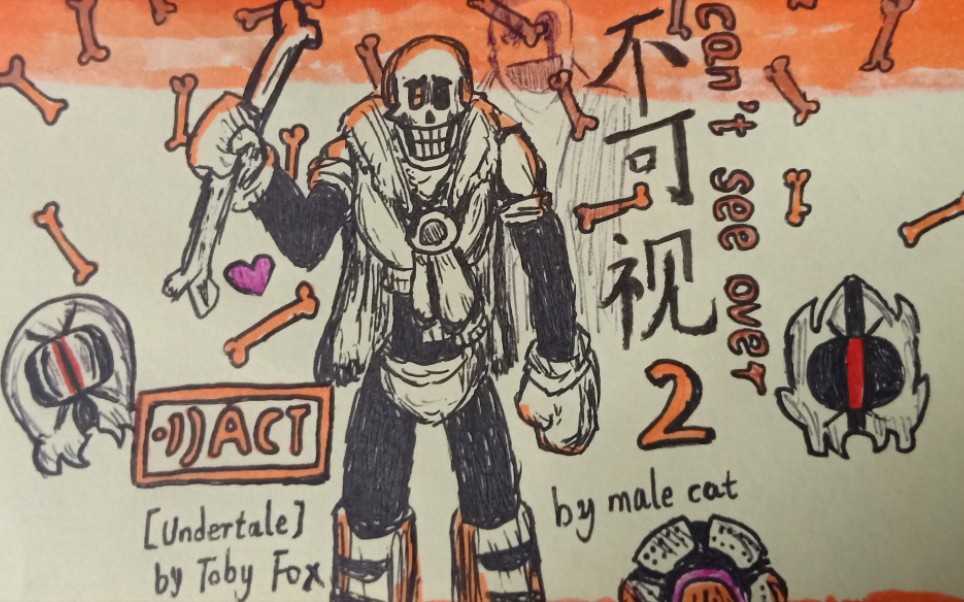 不可视
2
can't see over
ACT
[Undertale]
by Toby Fox
by male cat